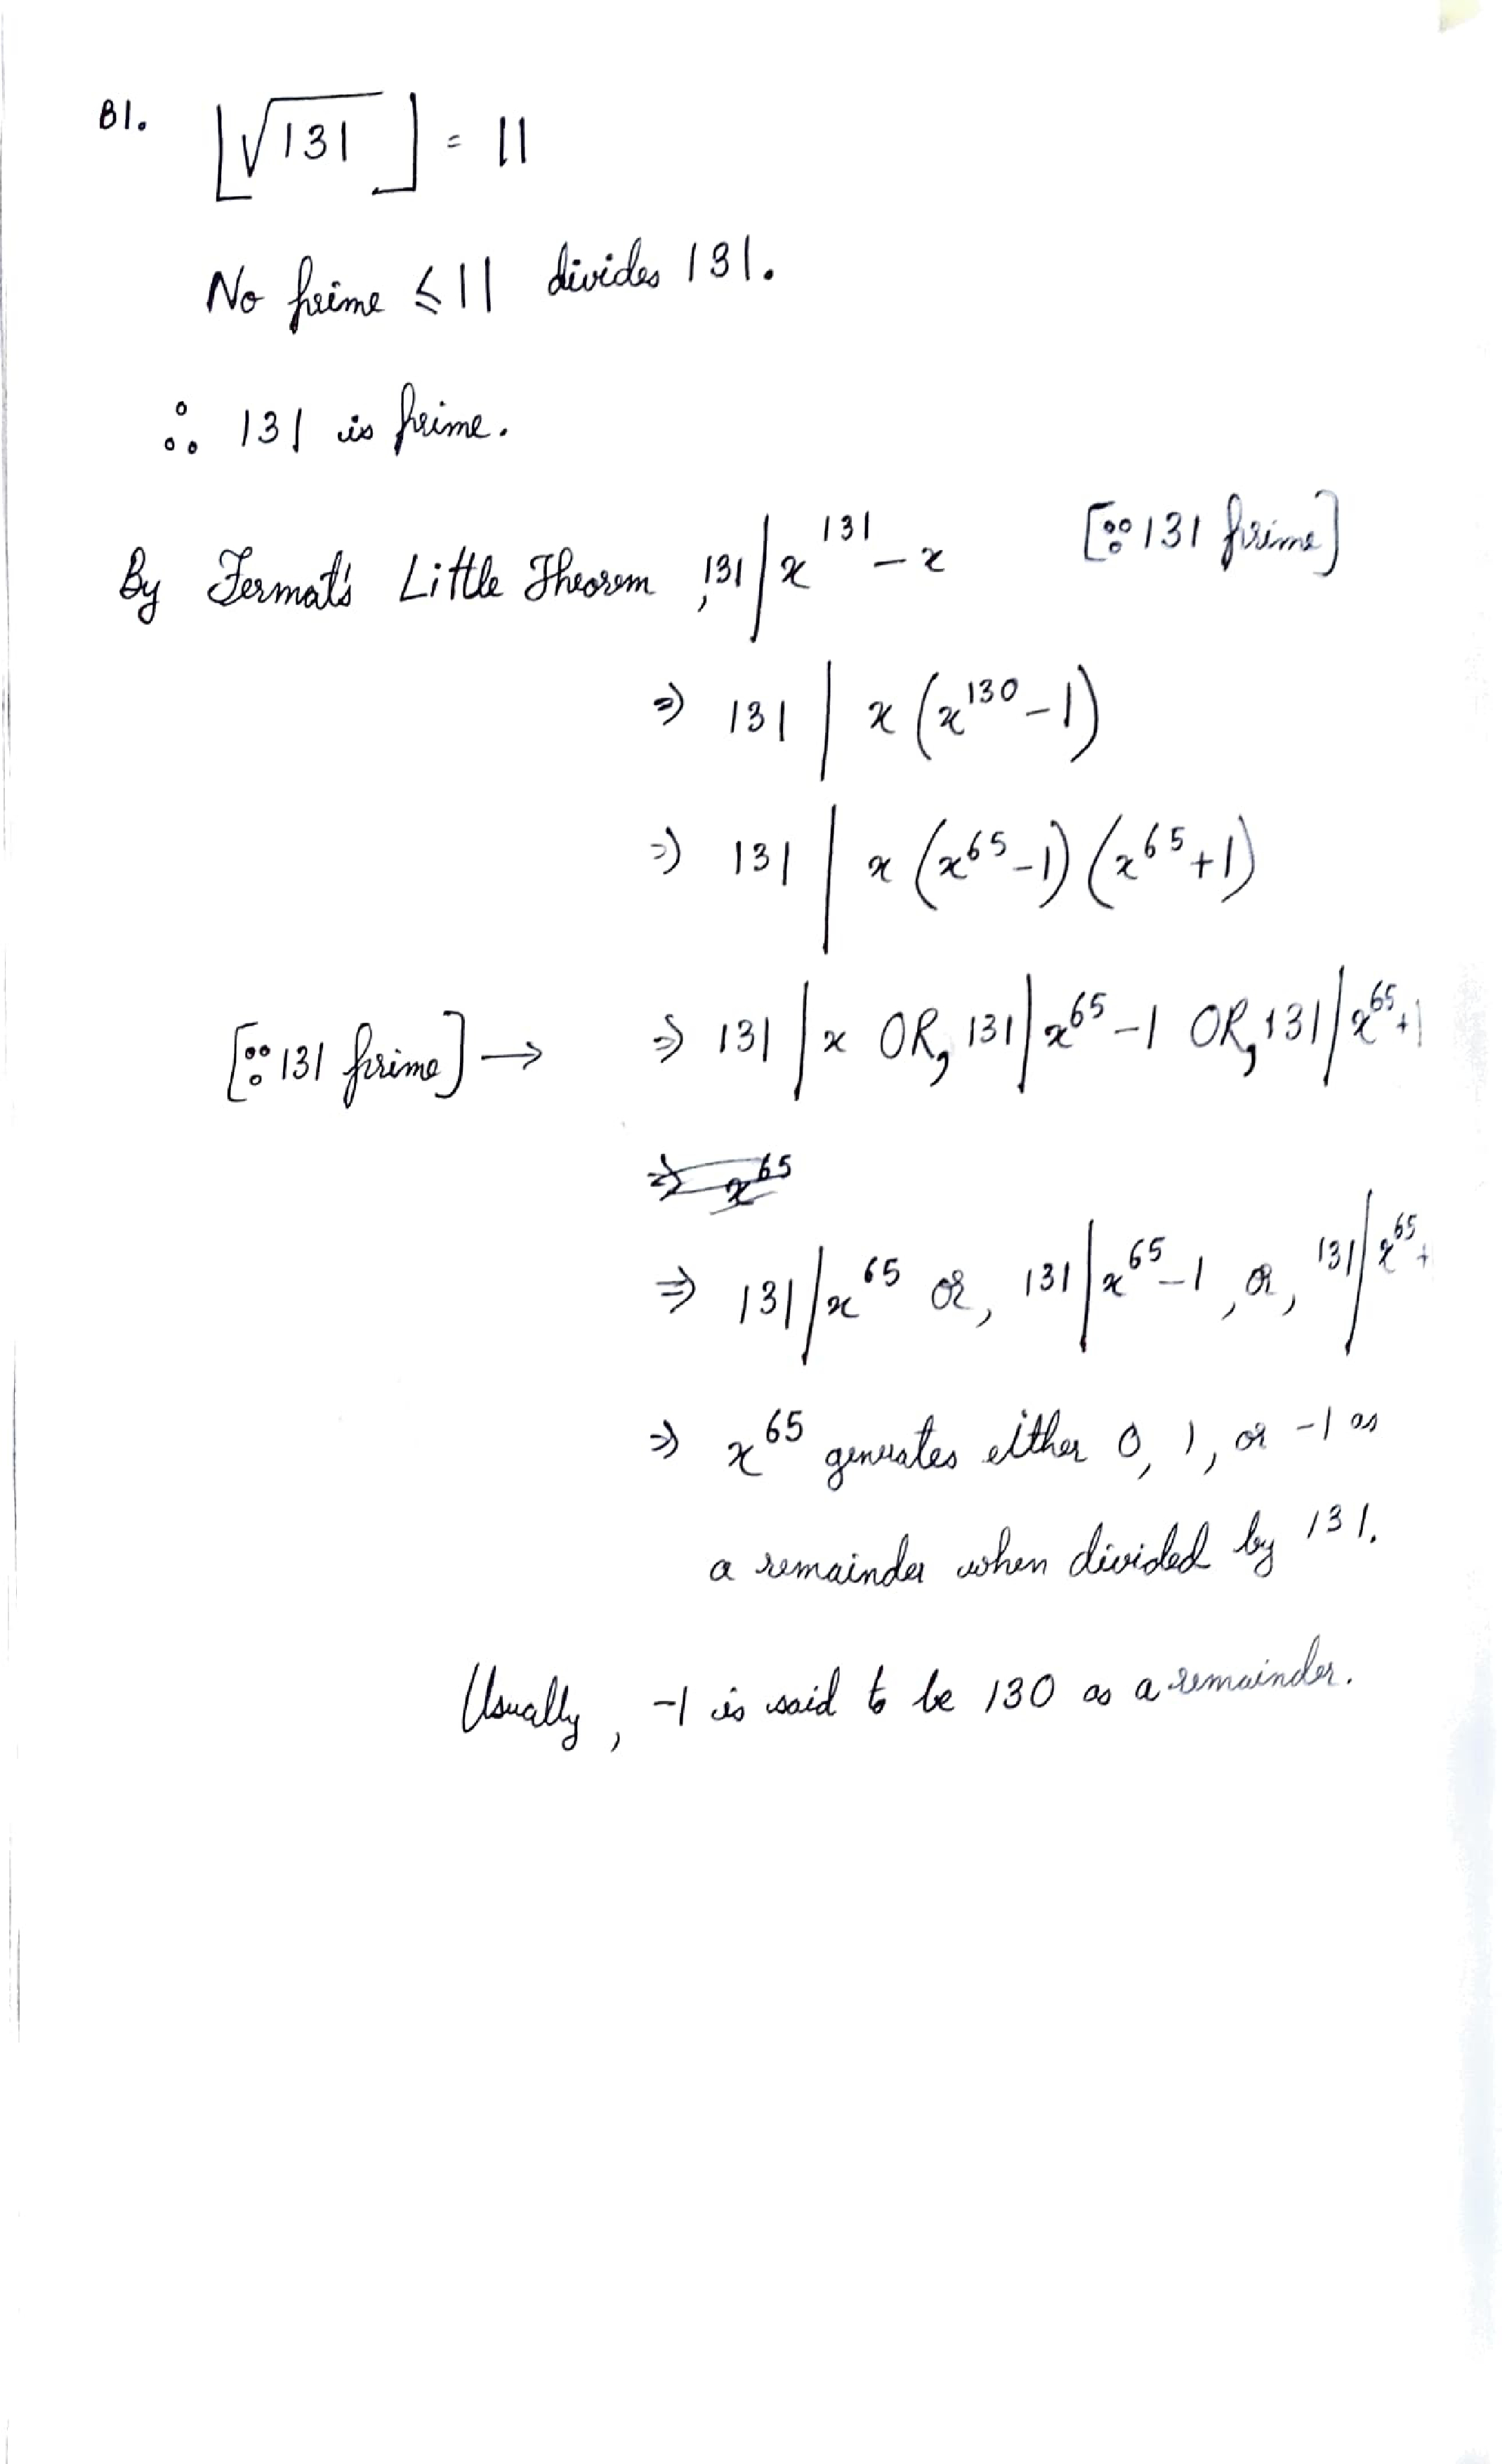 B1. ⌊√131⌋ = 11
No prime ≤ 11 divides 131.
∴ 131 is prime.
By Fermat's Little Theorem, 131 | x^131 - x [∵ 131 prime]
⇒ 131 | x (x^130 - 1)
⇒ 131 | x (x^65 - 1) (x^65 + 1)
[∵ 131 prime] → ⇒ 131 | x OR, 131 | x^65 - 1 OR, 131 | x^65 + 1
⇒ x^65
⇒ 131 | x^65 or, 131 | x^65 - 1, or, 131 | x^65 +
⇒ x^65 generates either 0, 1, or -1 as
a remainder when divided by 131.
Usually, -1 is said to be 130 as a remainder.